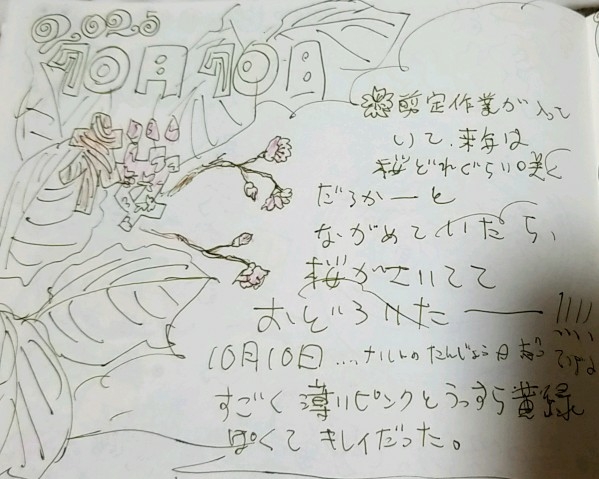 2025
10月10日
剪定作業が入って
いて、来年は
桜どれぐらい咲く
だろかーと
ながめていたら、
桜がさいてて
おどろいたー!!!!
10月10日...ナルトのたんじょう日
すごく薄いピンクとうっすら黄緑
ぽくてキレイだった。